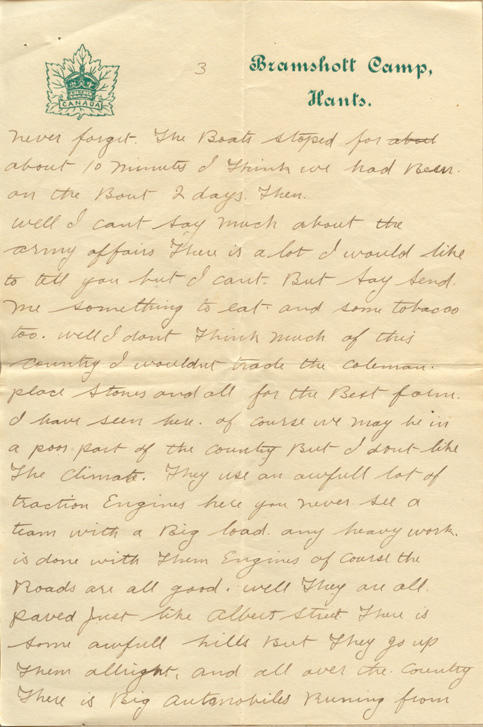 3
Bramshott Camp,
Hants.
CANADA
never forget. The Boats stoped for about
about 10 minutes I Think we had Been
on the Bout 2 days. Then.
well I cant say much about the
army affairs There is a lot I would like
to tell you but I cant. But say send.
me something to eat and some tobacoo
too. well I dont Think much of this
country I wouldnt trade the coleman.
place stones and all for the Best farm.
I have seen here. of course we may be in
a poor part of the country But I dont like
The climate. They use an awfull lot of
traction Engines here you never see a
team with a Big load. any heavy work.
is done with Them Engines of course the
Roads are all good. well They are all.
paved Just like Albert Street There is
some awfull hills But They go up
Them allright, and all over the country
There is Big automobiles Runing from